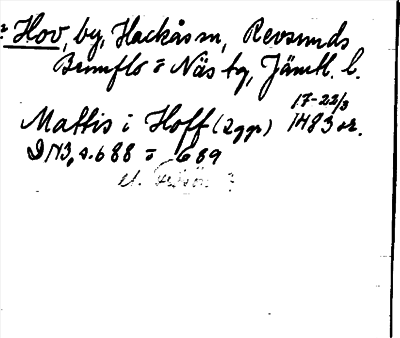 Hov, by, Hackås sn, Revsunds
Brunflo o Näs tg, Jämtl. l.
17-22/3
Mattis i Hoff (2 ggr) 1483 or.
DN3, s. 688 o 689